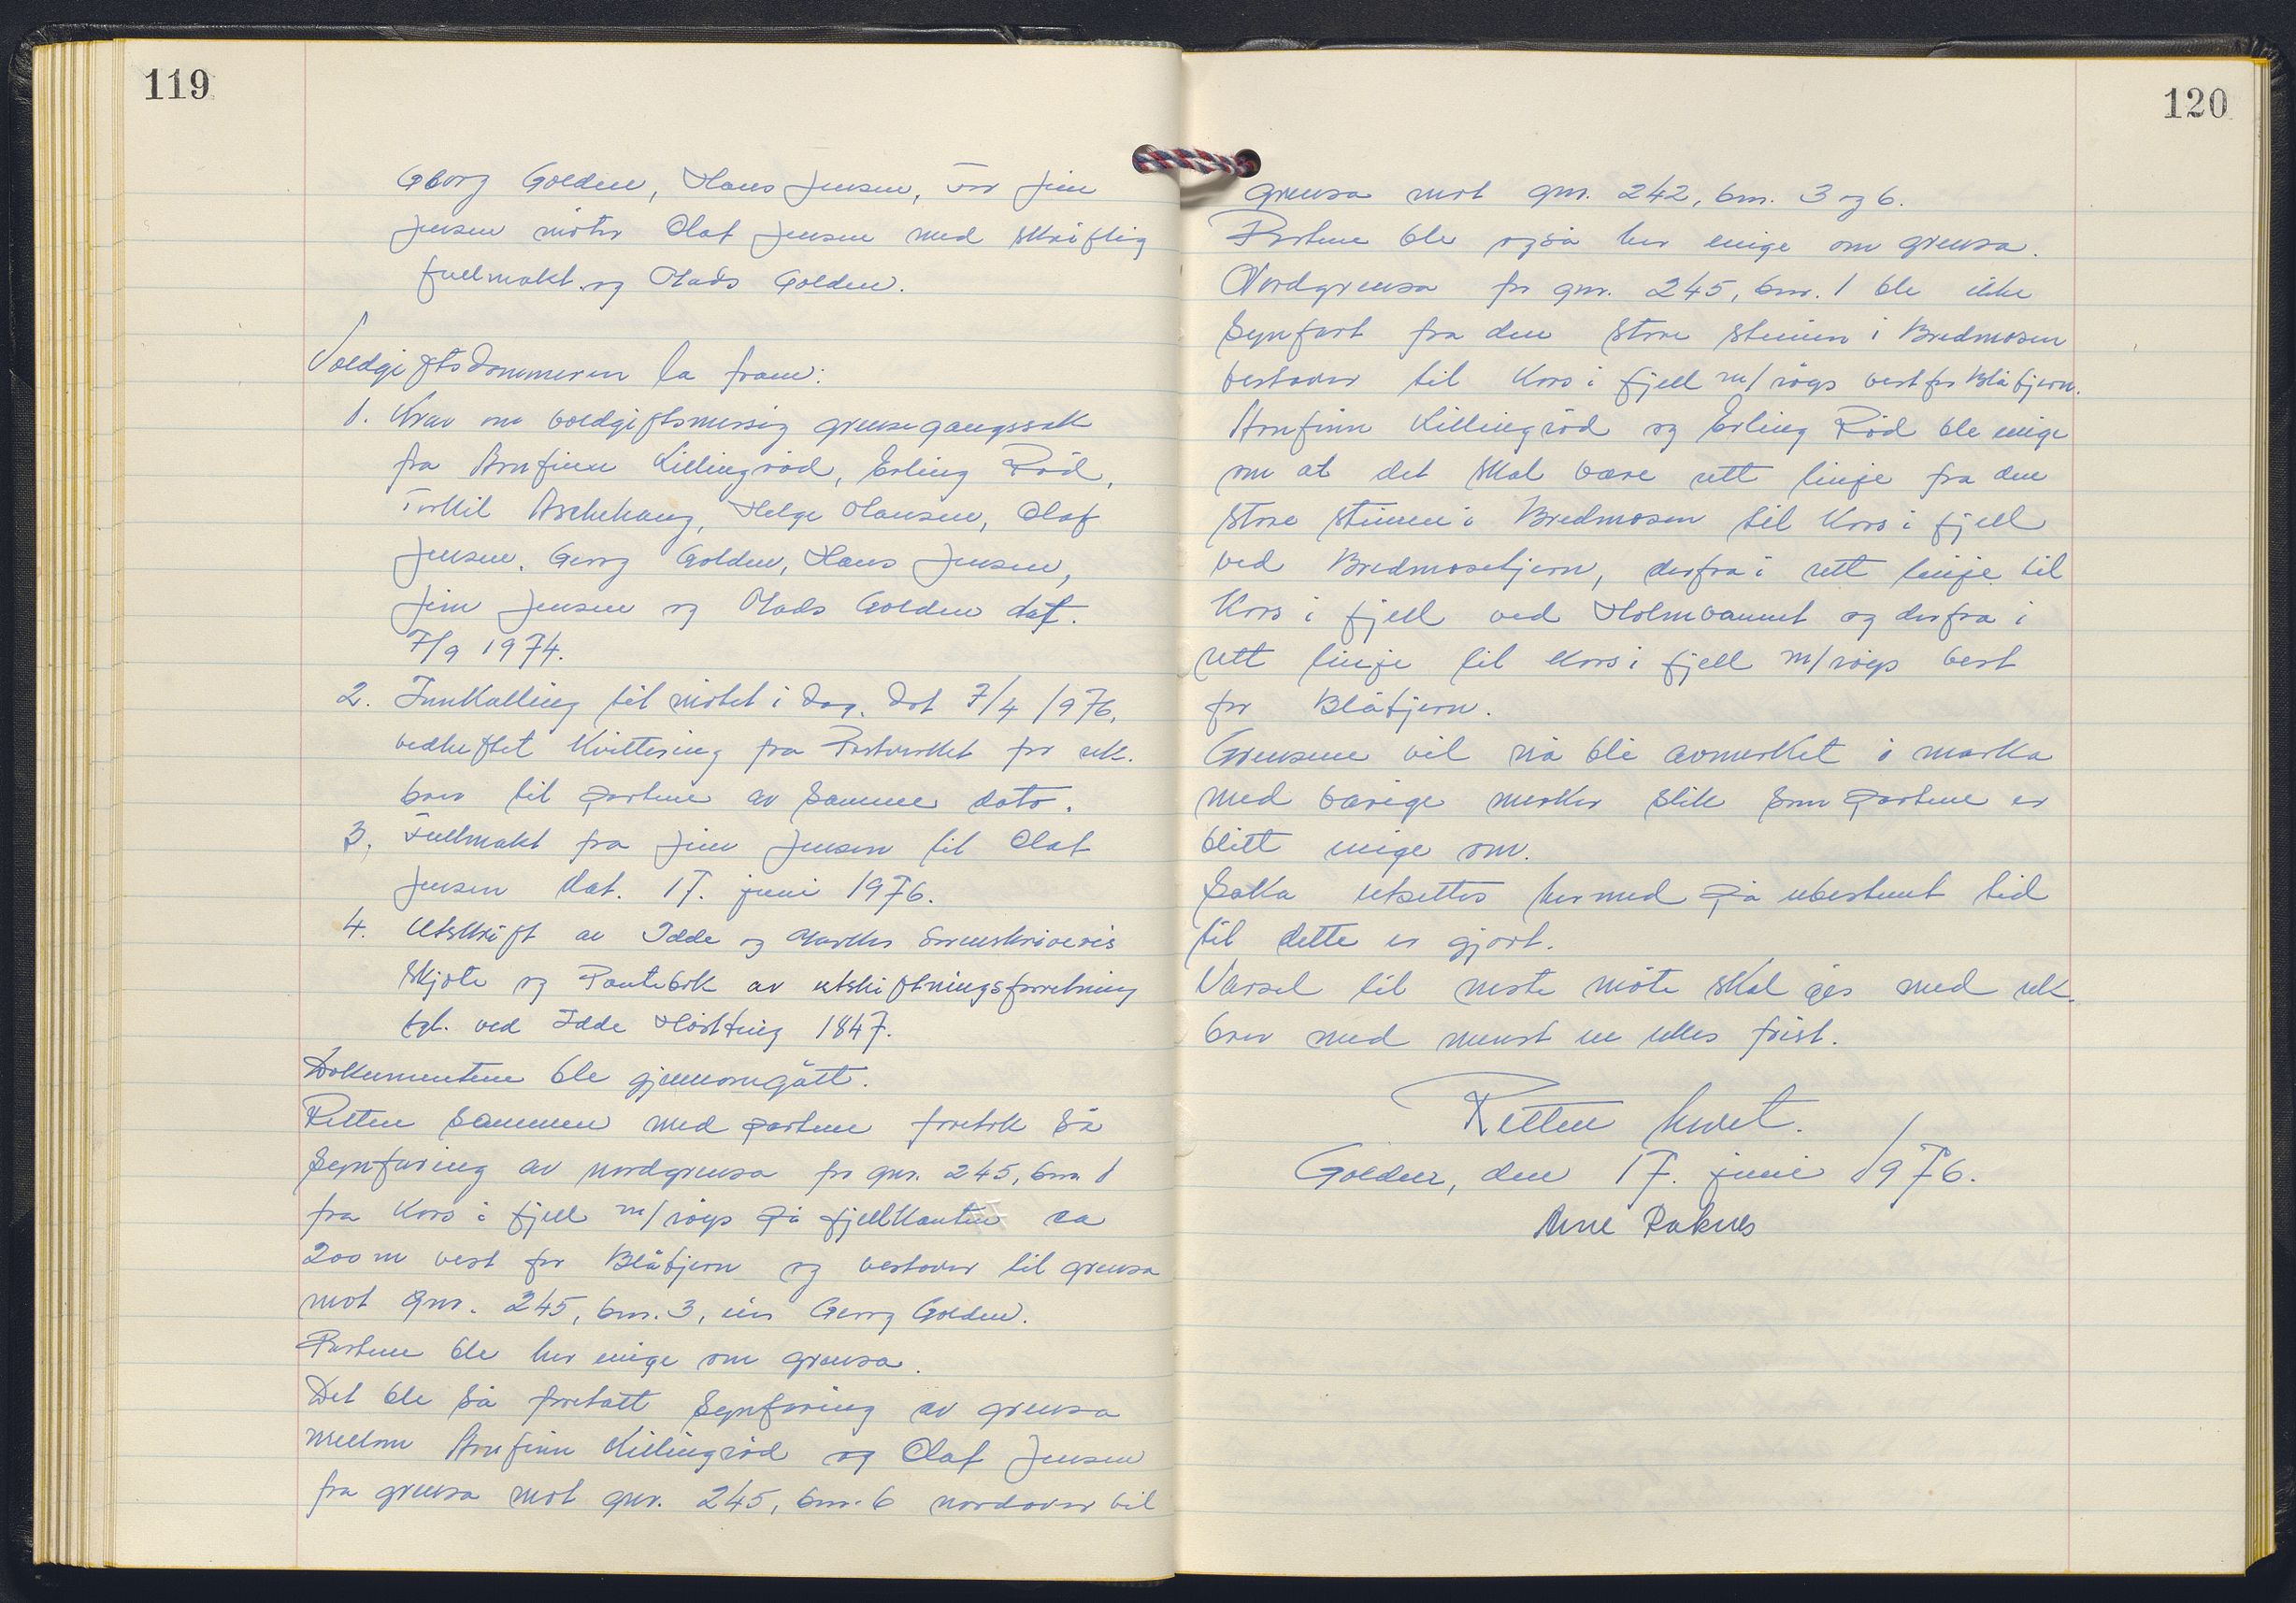 119
Georg Golden, Hans Jensen, For Jim
Jensen møter Olaf Jensen med skriftlig
fullmakt og Mads Golden.
Voldgiftsdommeren la fram:
1. Krav om voldgiftsmessig grensegangssak
fra Arnfinn Killingrød, Erling Rød,
Torkil Aschehaug, Helge Hansen, Olaf
Jensen, Georg Golden, Hans Jensen,
Jim Jensen og Mads Golden dat.
7/9 1974.
2. Innkalling til møtet i dag. dat 7/4 1976,
vedheftet kvittering fra Postverket for rek.
brev til partene av samme dato.
3. Fullmakt fra Jim Jensen til Olaf
Jensen dat. 17. juni 1976.
4. Utskrift av Idde og Marker Sorenskriveris
Skjøte og Pantebok av utskiftningsforretning
tgl. ved Idde Høstting 1847.
Dokumentene ble gjennomgått.
Retten sammen med partene foretok så
synfaring av nordgrensa for gnr. 245, bnr 1
fra Kors i fjell m/røys på fjellkanten ca
200 m vest for Blåtjern og vestover til grensa
mot gnr. 245, bnr. 3, eier Georg Golden.
Partene ble her enige om grensa.
Det ble så foretatt synfaring av grensa
mellom Arnfinn Killingrød og Olaf Jensen
fra grensa mot gnr. 245, bnr. 6 nordover til
120
grensa mot gnr. 242, bnr. 3 og 6.
Partene ble også her enige om grensa.
Nordgrensa for gnr. 245, bnr. 1 ble ikke
synfart fra den store steinen i Bredmosen
vestover til Kors i fjell m/røys vest for Blåtjern.
Arnfinn Killingrød og Erling Rød ble enige
om at det skal være rett linje fra den
store steinen i Bredmosen til Kors i fjell
ved Bredmosetjern, derfra i rett linje til
Kors i fjell ved Holmvannet og derfra i
rett linje til Kors i fjell m/røys vest
for Blåtjern.
Grensene vil nå bli avmerket i marka
med varige merker slik som partene er
blitt enige om.
Saka utsettes hermed på ubestemt tid
til dette er gjort.
Varsel til neste møte skal gis med rek.
brev med minst en ukes frist.
Retten hevet.
Golden, den 17. juni 1976.
Arne Raknes